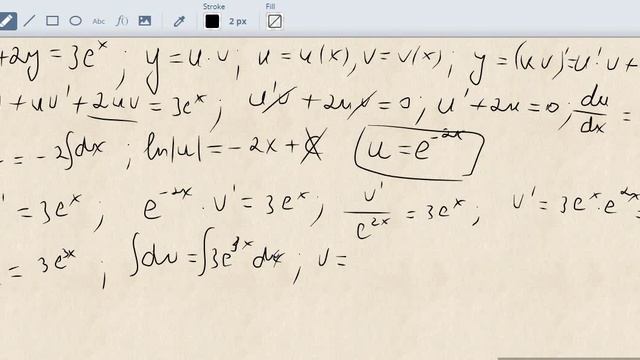 Stroke Fill
Abc f() 2 px
+2y = 3e^x ; y = u·v ; u = u(x), v = v(x) ; y = (uv)' = u'v +
+ uv' + 2uv = 3e^x ; u'v + 2uv = 0 ; u' + 2u = 0 ; du/dx =
= -2∫dx ; ln|u| = -2x + C u = e^{-2x}
' = 3e^x ; e^{-2x} · v' = 3e^x ; v'/e^{2x} = 3e^x ; v' = 3e^x · e^{2x} =
= 3e^{3x} ; ∫dv = ∫3e^{3x}dx ; v =